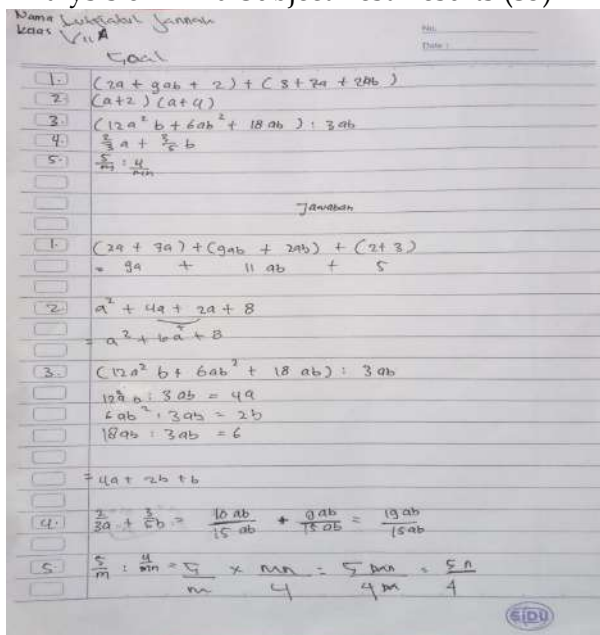 Nama Luhfiatul Jannah
kelas VII A
No.
Date :
Soal
1. (2a + 9ab + 2) + (3 + 7a + 2ab)
2. (a+2) (a+4)
3. (12a² b + 6ab² + 18 ab) : 3 ab
4. 2/3 a + 3/5 b
5. 5/m : 4/mn
Jawaban
1. (2a + 7a) + (9ab + 2ab) + (2+3)
= 9a + 11 ab + 5
2. a² + 4a + 2a + 8
= a² + 6a + 8
3. (12a² b + 6ab² + 18 ab) : 3 ab
12a² b : 3 ab = 4a
6ab² : 3ab = 2b
18ab : 3ab = 6
= 4a + 2b + b
4. 2/3a + 3/5b = 10 ab/15 ab + 9ab/15 ab = 19 ab/15ab
5. 5/m : 4/mn = 5/m × mn/4 = 5mn/4m = 5n/4
SIDU